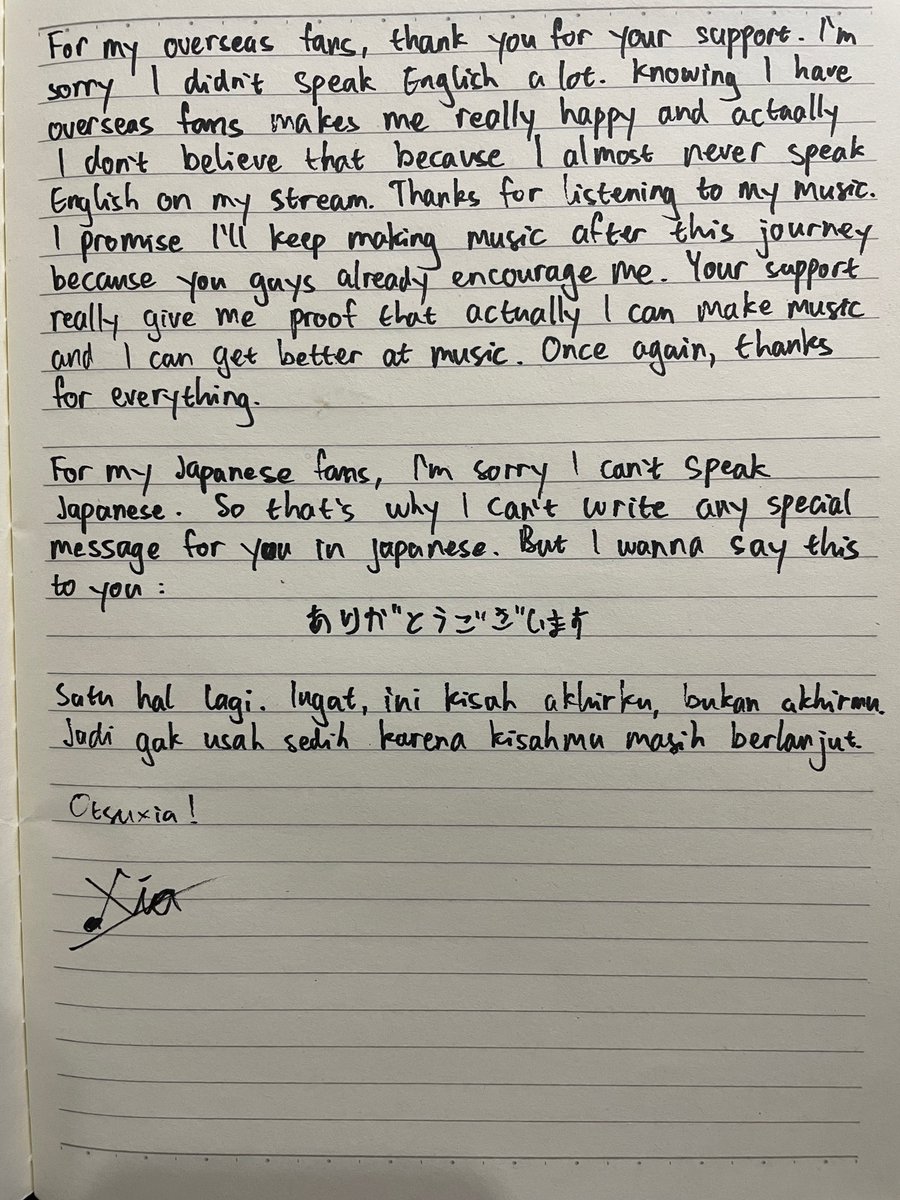 For my overseas fans, thank you for your support. I'm
sorry I didn't speak English a lot. Knowing I have
overseas fans makes me really happy and actually
I don't believe that because I almost never speak
English on my stream. Thanks for listening to my music.
I promise I'll keep making music after this journey
because you guys already encourage me. Your support
really give me proof that actually I can make music
and I can get better at music. Once again, thanks
for everything.
For my Japanese fans, I'm sorry I can't speak
Japanese. So that's why I can't write any special
message for you in japanese. But I wanna say this
to you :
ありがとうございます
Satu hal lagi. Ingat, ini kisah akhirku, bukan akhirmu.
Jadi gak usah sedih karena kisahmu masih berlanjut.
Otsuxia!
Xia